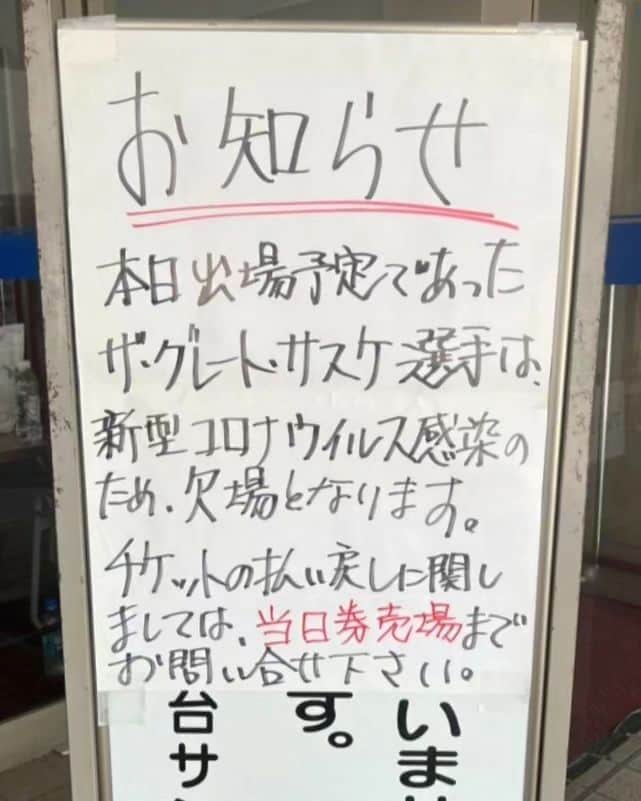 お知らせ
本日出場予定であった
ザ・グレート・サスケ選手は、
新型コロナウイルス感染の
ため、欠場となります。
チケットの払い戻しに関し
ましては、当日券売場まで
お問い合せ下さい。
いま
す。
台サ